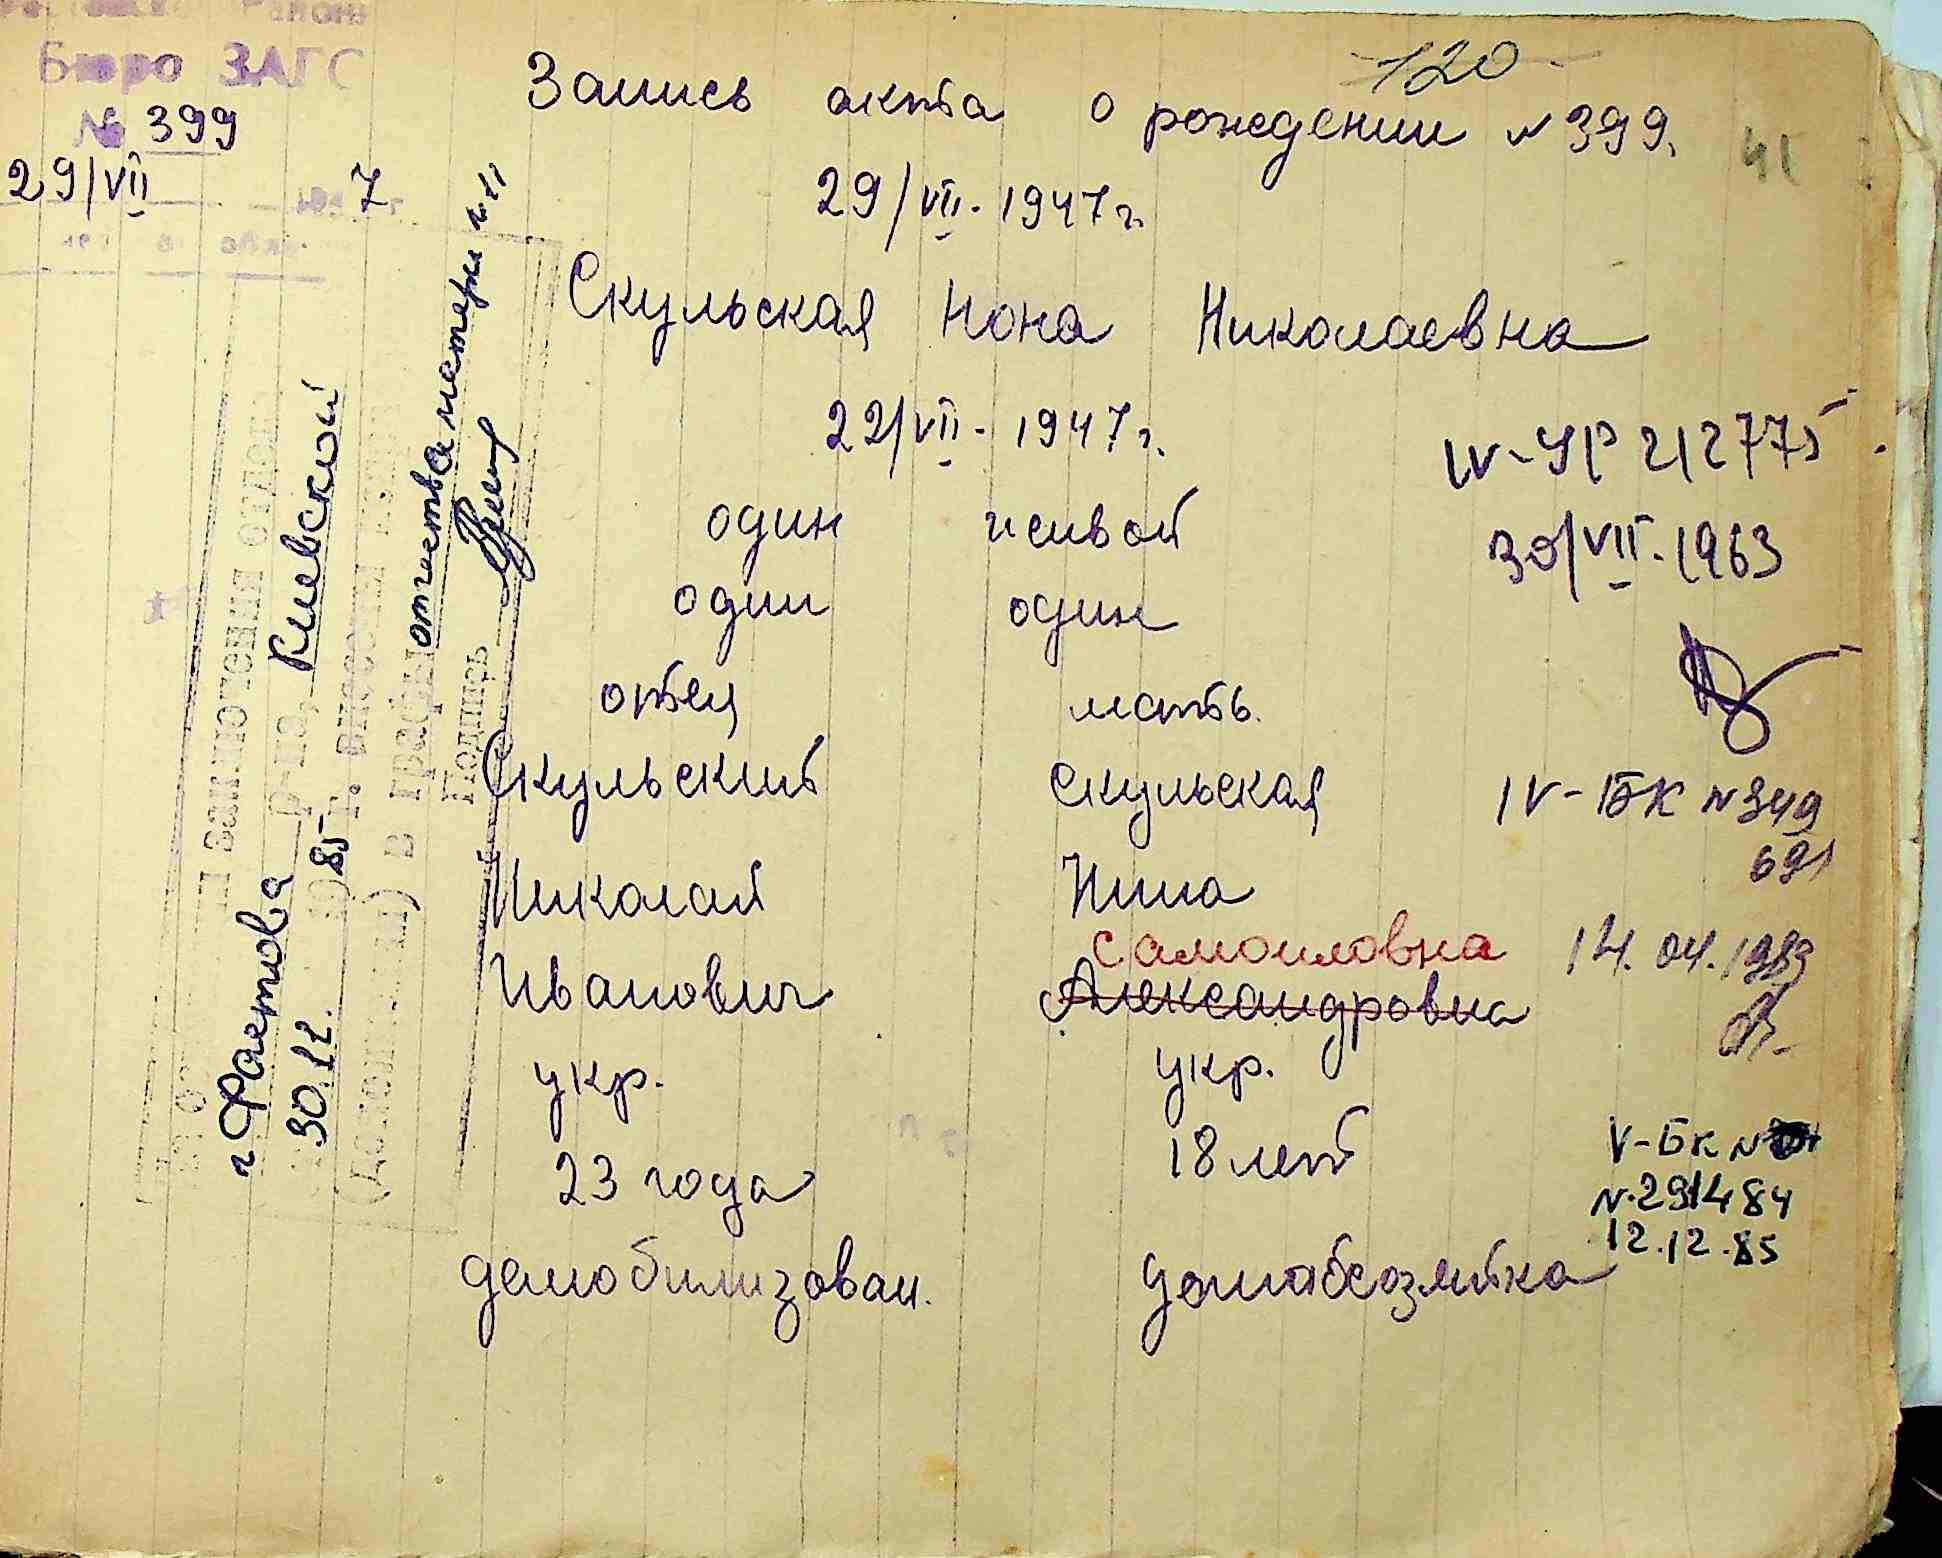 Бюро ЗАГС
№ 399
29/VII 7
120
Запись акта о рождении № 399.
41
29/VII - 1947 г.
Скульская Нона Николаевна
22/VII - 1947 г.
IV-УР 212775
один живой
30/VII - 1963
один один
отец мать
Скульский Скульская
IV-БК № 349
691
Николай Нина
Самоиловна
14.04.1983
Иванович Александровна
укр. укр.
23 года 18 лет
V-БК №
N.291484
12.12.85
демобилизован. домохозяйка
г. Фастова р-не, Киевской
30.11. 1985 г. внесены
(дополнен) в графы отчества матери № 11
Подпись